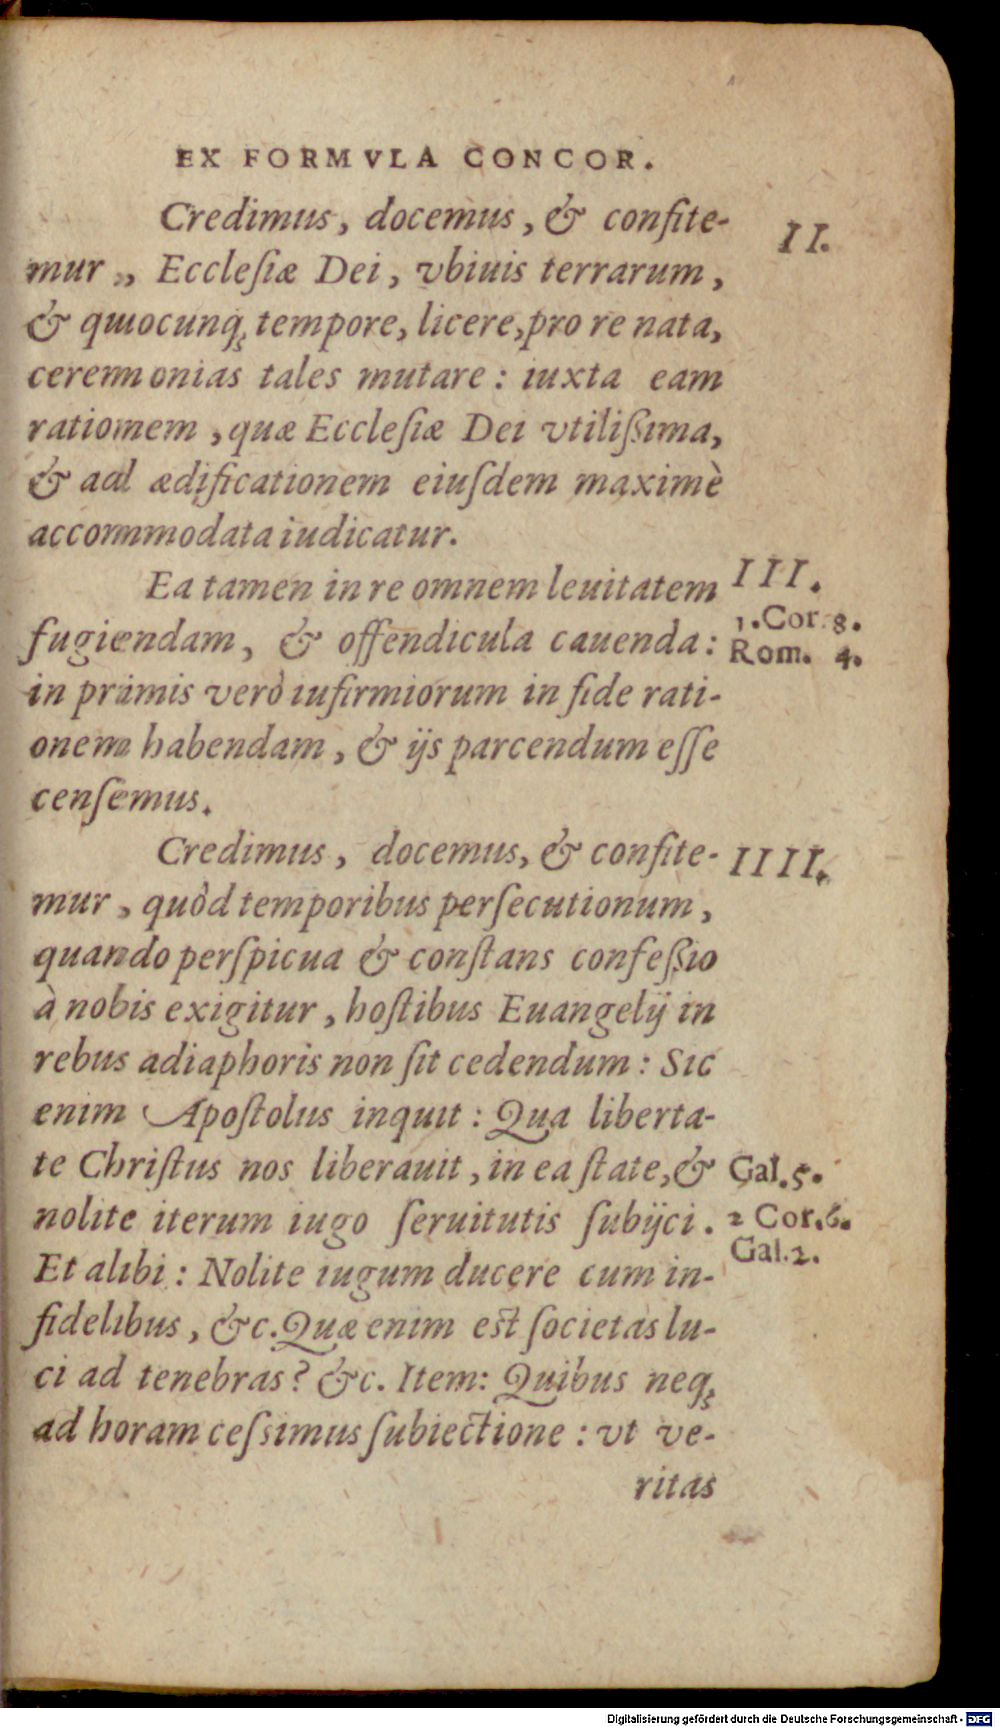 EX FORMVLA CONCOR.
Credimus, docemus, & confite-
II.
mur, Ecclesiæ Dei, vbiuis terrarum,
& quocunq; tempore, licere, pro re nata,
ceremonias tales mutare: iuxta eam
rationem, quæ Ecclesiæ Dei vtilißima,
& ad ædificationem eiusdem maximè
accommodata iudicatur.
Ea tamen in re omnem leuitatem
III.
1.Cor.8.
fugiendam, & offendicula cauenda:
Rom. 4.
in primis verò iufirmiorum in fide rati-
onem habendam, & ijs parcendum esse
censemus.
Credimus, docemus, & confite-
IIII.
mur, quòd temporibus persecutionum,
quando perspicua & constans confeßio
à nobis exigitur, hostibus Euangelij in
rebus adiaphoris non sit cedendum: Sic
enim Apostolus inquit: Qua liberta-
te Christus nos liberauit, in ea state, &
Gal.5.
nolite iterum iugo seruitutis subijci.
2 Cor.6.
Gal.2.
Et alibi: Nolite iugum ducere cum in-
fidelibus, &c. Quæ enim est societas lu-
ci ad tenebras? &c. Item: Quibus neq;
ad horam cessimus subiectione: vt ve-
ritas
Digitalisierung gefördert durch die Deutsche Forschungsgemeinschaft - DFG